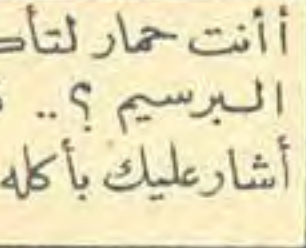 أأنت حمار لتأك
البرسيم ؟ ..
أشار عليك بأكله